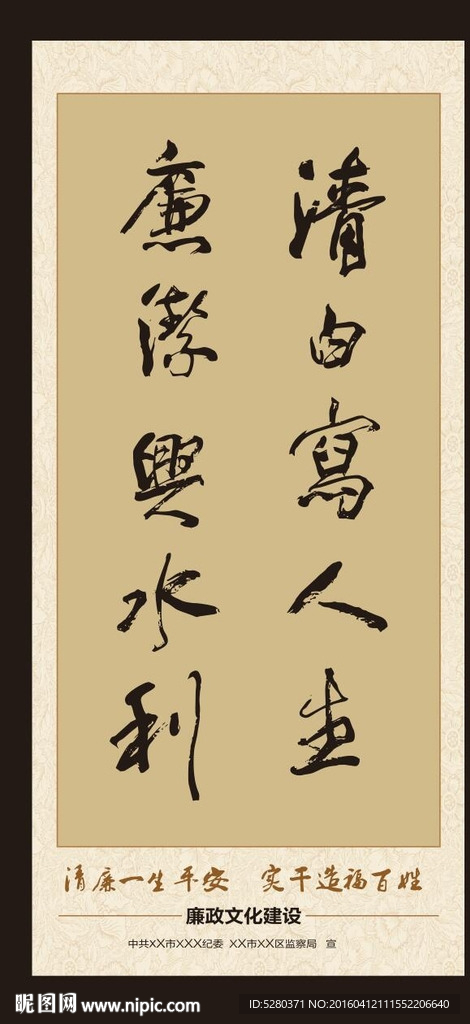 清白寫人生
廉潔興水利
清廉一生平安 实干造福百姓
廉政文化建设
中共XX市XXX纪委 XX市XX区监察局 宣
昵图网 www.nipic.com
ID:5280371 NO:20160412111552206640